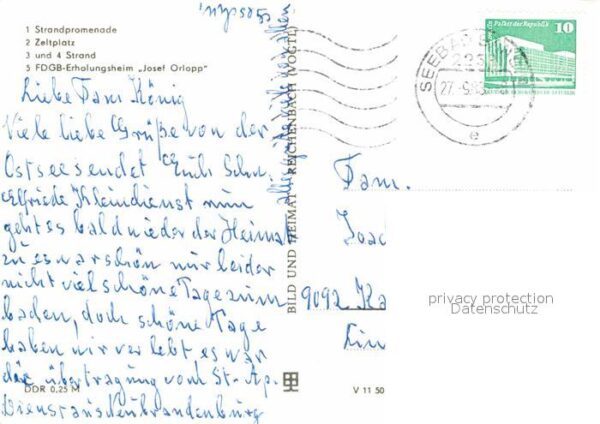 1 Strandpromenade
2 Zeltplatz
3 und 4 Strand
5 FDGB-Erholungsheim „Josef Orlopp"
Liebe Fam König
Viele liebe Grüße von der
Ostsee sendet Euch
Elfriede Kleindienst nun
geht es bald wieder der Heimat
zu es war schön nur leider
nicht viel schöne Tage zum
baden, doch schöne Tage
haben wir verlebt es war
die übertragung vom St.
Neubrandenburg
DDR 0,25 M
BILD UND HEIMAT REICHENBACH (VOGTL)
V 11 50
Palast der Republik
10
DDR
SEEBAD
27.
e
Fam.
Joac
9092 Ka
privacy protection
Datenschutz